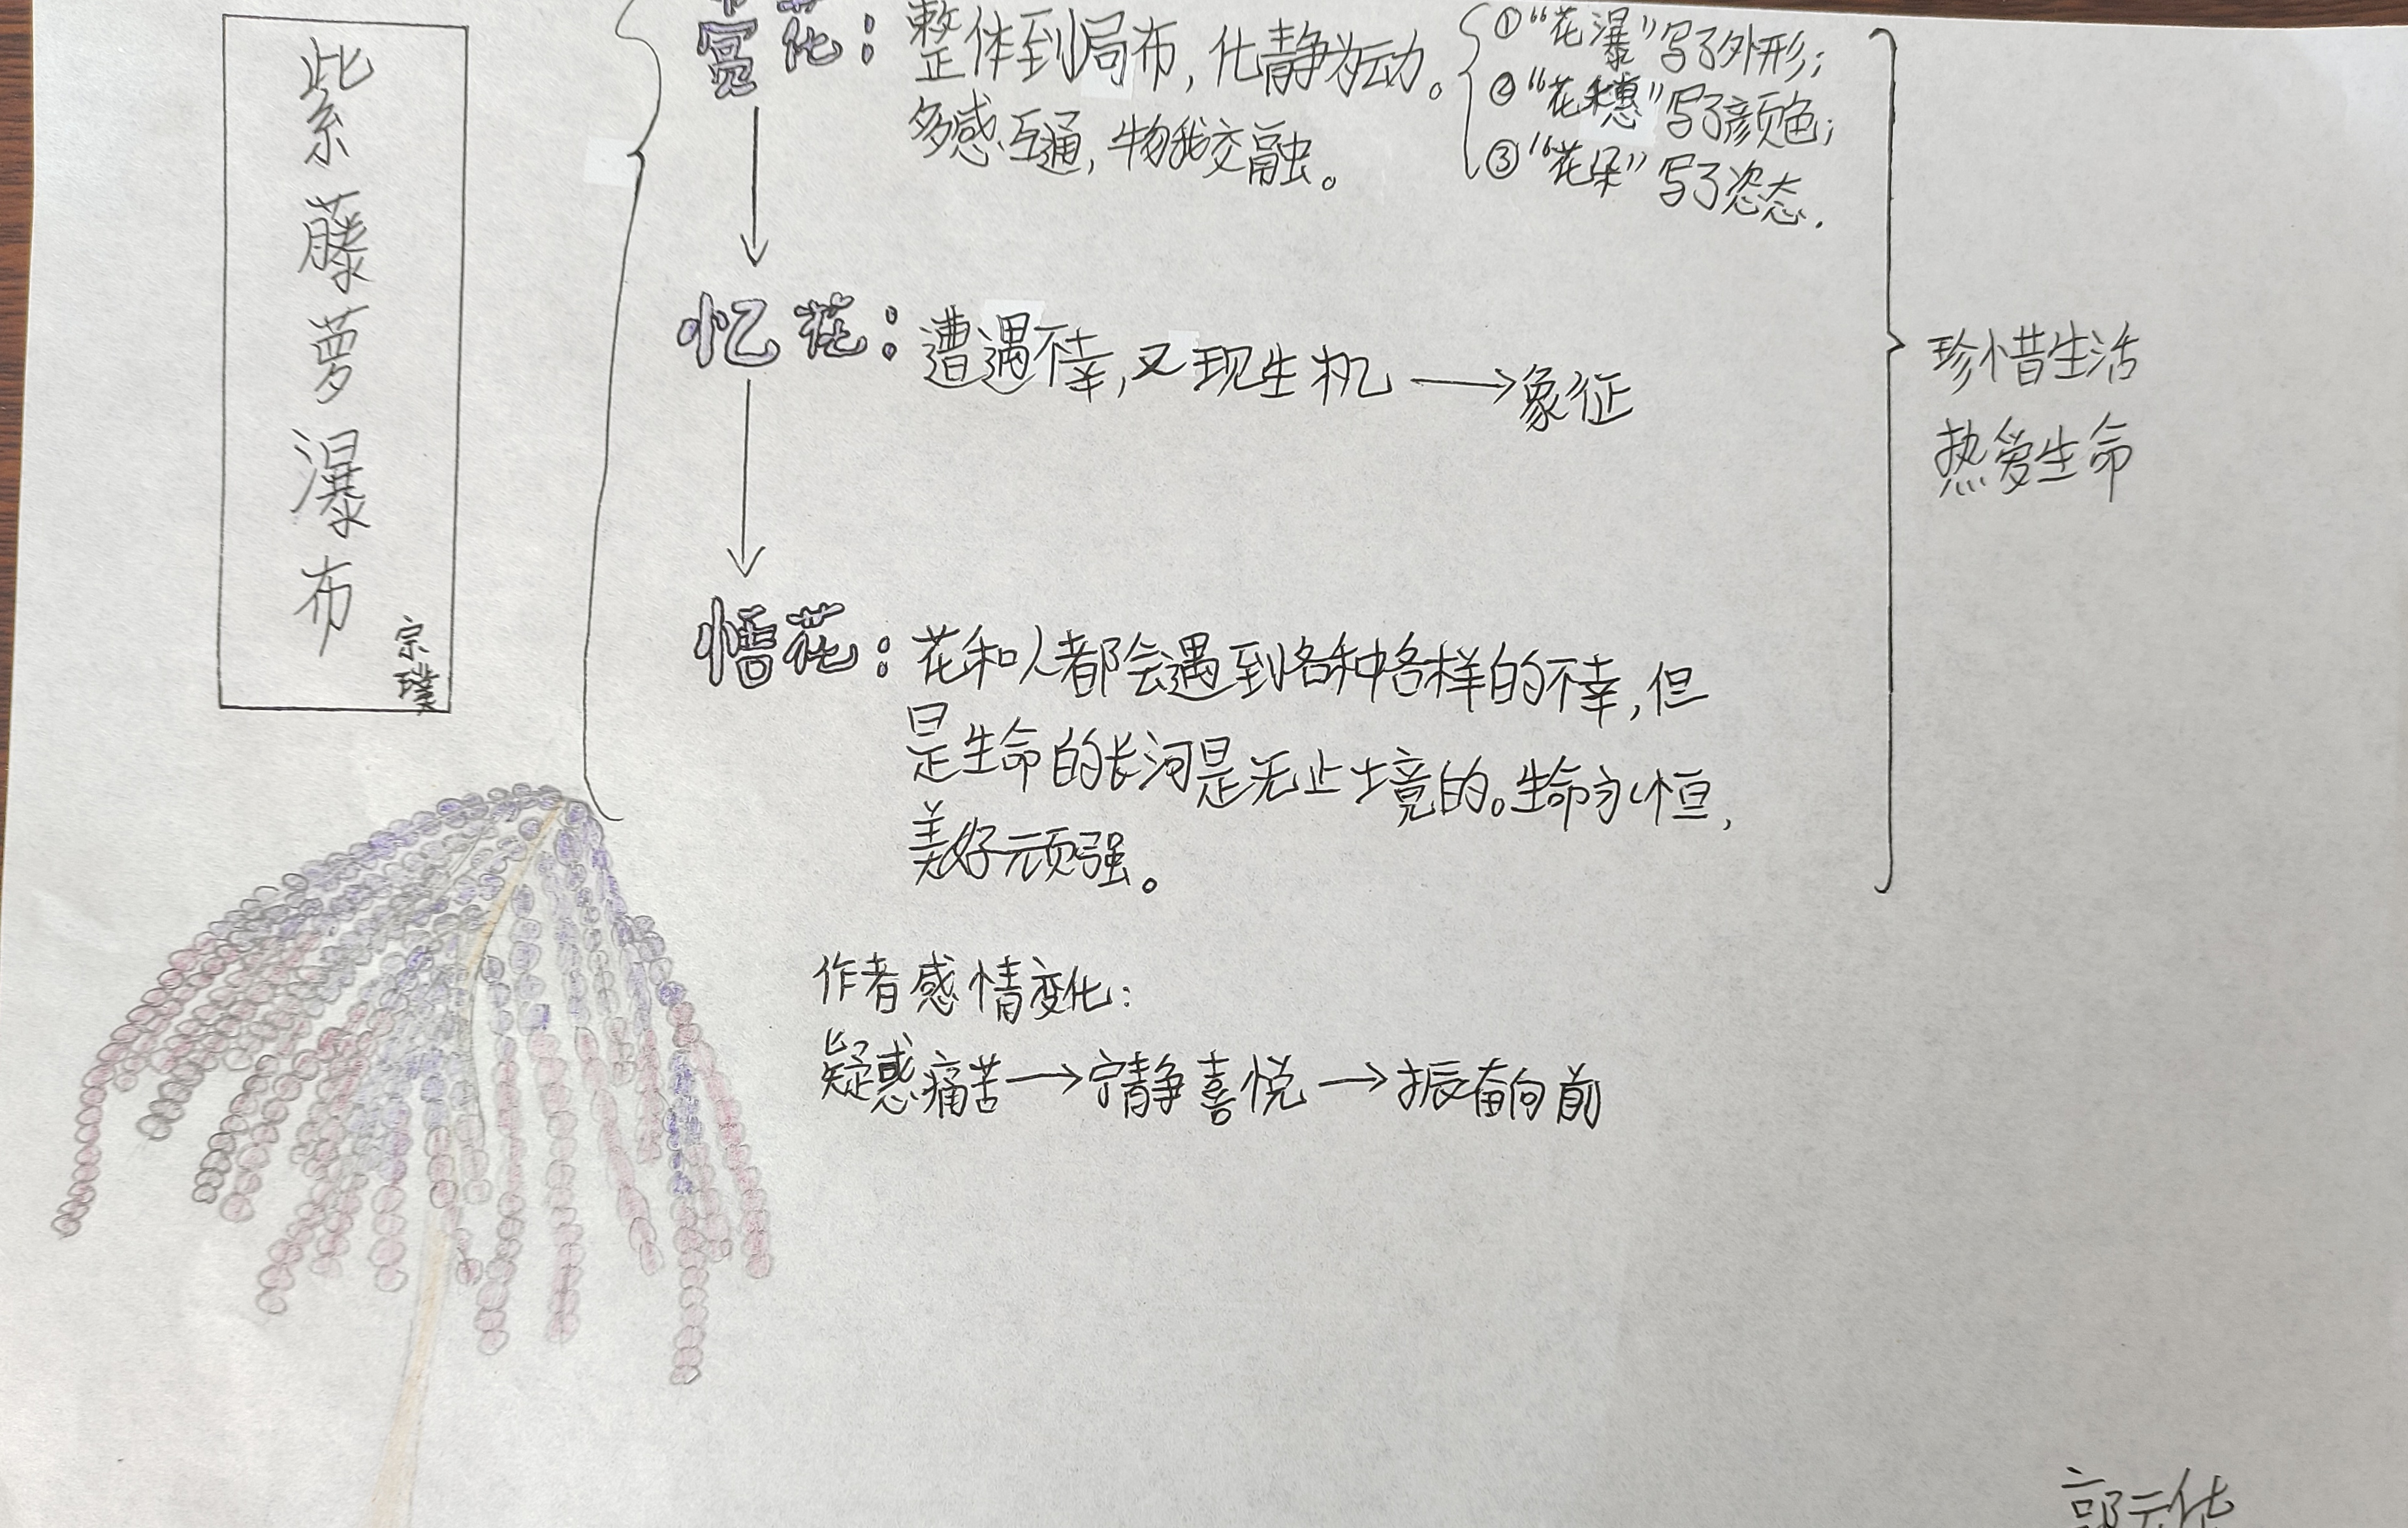 紫藤萝瀑布
宗璞
赏花：整体到局布，化静为动。
多感互通，物我交融。
①“花瀑”写了外形；
②“花穗”写了颜色；
③“花朵”写了姿态.
忆花：遭遇不幸，又现生机→象征
悟花：花和人都会遇到各种各样的不幸，但
是生命的长河是无止境的。生命永恒，
美好顽强。
珍惜生活
热爱生命
作者感情变化：
疑惑痛苦→宁静喜悦→振奋向前